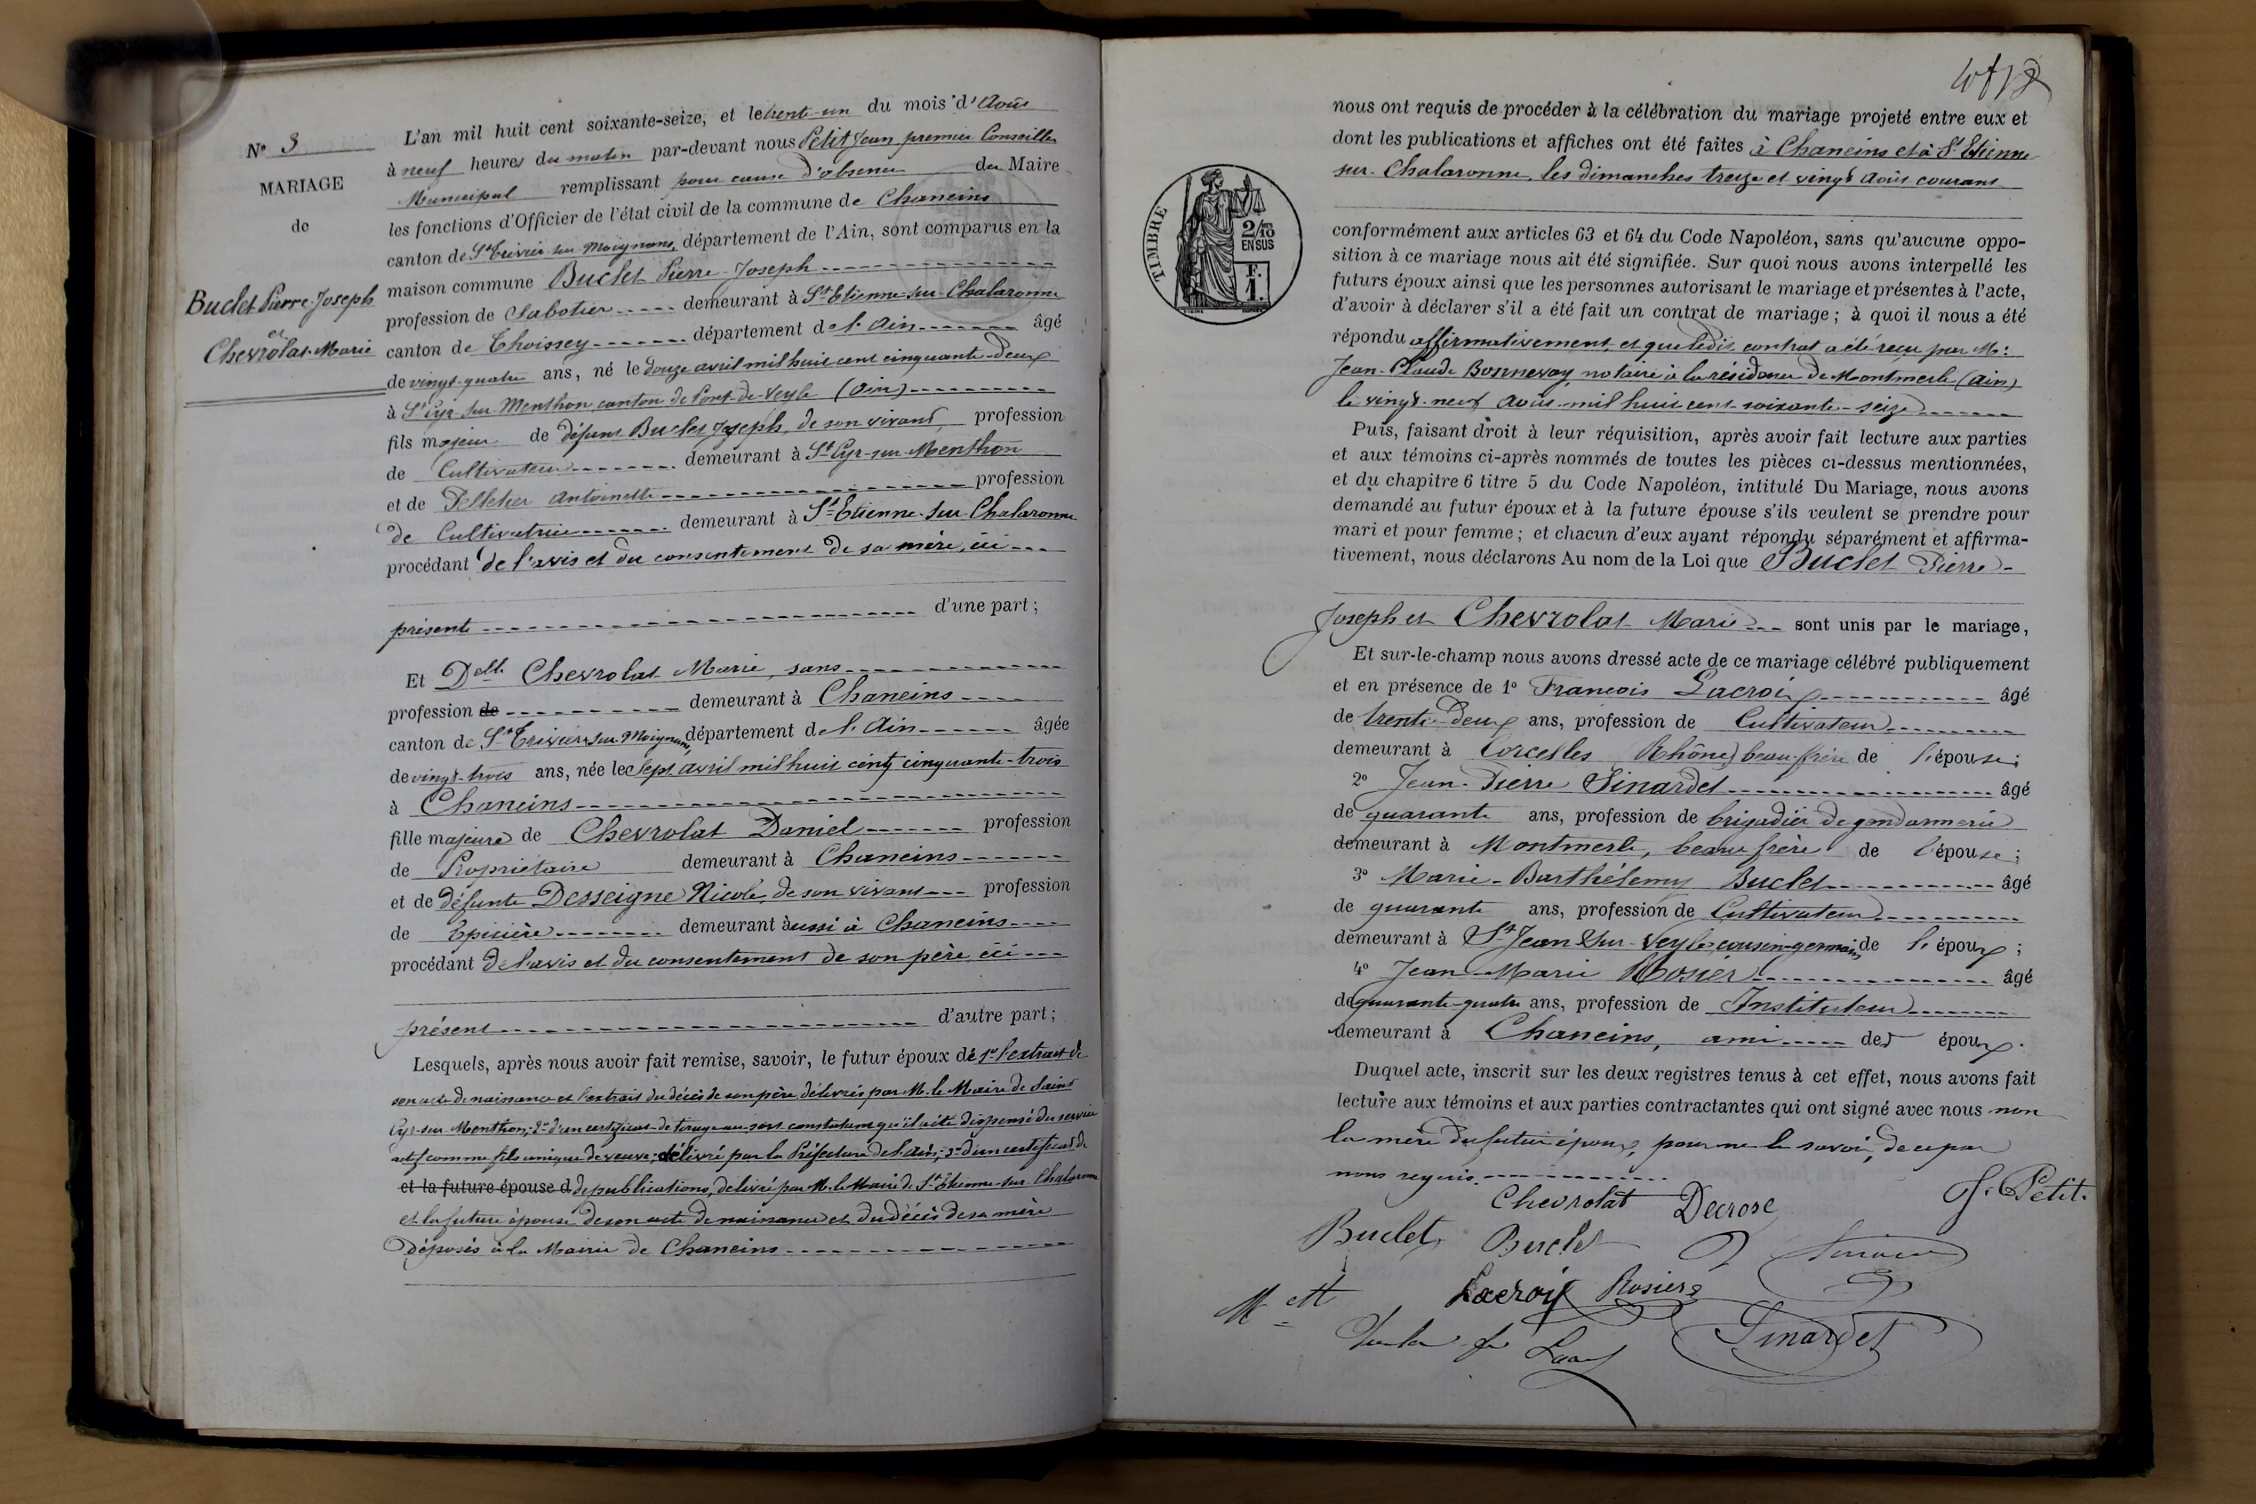 N° 3
MARIAGE
de
Buclet Pierre-Joseph
et
Chevrolat Marie
L'an mil huit cent soixante-seize, et le trente-un du mois d'Août
à neuf heures du matin par-devant nous Petit Jean premier Conseiller
Municipal remplissant pour cause d'absence du Maire
les fonctions d'Officier de l'état civil de la commune de Chaneins
canton de St Trivier-sur-Moignans, département de l'Ain, sont comparus en la
maison commune Buclet Pierre-Joseph
profession de Sabotier demeurant à St Etienne-sur-Chalaronne
canton de Thoissey département de l'Ain âgé
de vingt-quatre ans, né le douze avril mil huit cent cinquante-deux
à St Cyr-sur-Menthon, canton de Pont-de-Veyle (Ain)
fils majeur de défunt Buclet Joseph, de son vivant, profession
de Cultivateur demeurant à St Cyr-sur-Menthon
et de Antoinette profession
de Cultivatrice demeurant à St Etienne-sur-Chalaronne
procédant de l'avis et du consentement de sa mère, ici
présente d'une part;
Et Delle Chevrolat Marie, sans
profession de demeurant à Chaneins
canton de St Trivier-sur-Moignans, département de l'Ain âgée
de vingt-trois ans, née le sept avril mil huit cent cinquante-trois
à Chaneins
fille majeure de Chevrolat Daniel profession
de Propriétaire demeurant à Chaneins
et de défunte Desseigne Nicole, de son vivant profession
de Epicière demeurant aussi à Chaneins
procédant de l'avis et du consentement de son père, ici
présent d'autre part;
Lesquels, après nous avoir fait remise, savoir, le futur époux de 1° l'extrait de
son acte de naissance et l'extrait du décès de son père, délivrés par M. le Maire de Saint
Cyr-sur-Menthon; 2° d'un certificat de tirage au sort constatant qu'il a été dispensé du service
actif comme fils unique de veuve; délivré par la Préfecture de l'Ain; 3° d'un certificat de
et la future épouse d de publications, délivré par M. le Maire de St Etienne-sur-Chalaronne
et la future épouse de son acte de naissance et du décès de sa mère
déposés à la Mairie de Chaneins
nous ont requis de procéder à la célébration du mariage projeté entre eux et
dont les publications et affiches ont été faites à Chaneins et à St Etienne
sur-Chalaronne, les dimanches treize et vingt août courant
TIMBRE
2/10 EN SUS
F. 1.
conformément aux articles 63 et 64 du Code Napoléon, sans qu'aucune oppo-
sition à ce mariage nous ait été signifiée. Sur quoi nous avons interpellé les
futurs époux ainsi que les personnes autorisant le mariage et présentes à l'acte,
d'avoir à déclarer s'il a été fait un contrat de mariage; à quoi il nous a été
répondu affirmativement, et que ledit contrat a été reçu par Me
Jean-Claude Bonnevay, notaire à la résidence de Montmerle (Ain)
le vingt-neuf août mil huit cent soixante-seize
Puis, faisant droit à leur réquisition, après avoir fait lecture aux parties
et aux témoins ci-après nommés de toutes les pièces ci-dessus mentionnées,
et du chapitre 6 titre 5 du Code Napoléon, intitulé Du Mariage, nous avons
demandé au futur époux et à la future épouse s'ils veulent se prendre pour
mari et pour femme; et chacun d'eux ayant répondu séparément et affirma-
tivement, nous déclarons Au nom de la Loi que Buclet Pierre-
Joseph et Chevrolat Marie sont unis par le mariage,
Et sur-le-champ nous avons dressé acte de ce mariage célébré publiquement
et en présence de 1° François Lacroix âgé
de trente-deux ans, profession de Cultivateur
demeurant à Corcelles (Rhône) beau-frère de l'épouse;
2° Jean-Pierre Sinardet âgé
de quarante ans, profession de brigadier de gendarmerie
demeurant à Montmerle, beau-frère de l'épouse;
3° Marie-Barthélemy Buclet âgé
de quarante ans, profession de Cultivateur
demeurant à St Jean-sur-Veyle, cousin-germain de l'époux;
4° Jean-Marie Rosier âgé
de quarante-quatre ans, profession de Instituteur
demeurant à Chaneins, ami des époux.
Duquel acte, inscrit sur les deux registres tenus à cet effet, nous avons fait
lecture aux témoins et aux parties contractantes qui ont signé avec nous non
la mère du futur époux, pour ne le savoir, de ce par
nous requis.
Chevrolat Decrose J. Petit
Buclet Buclet
Lacroix Rosier
Sinardet